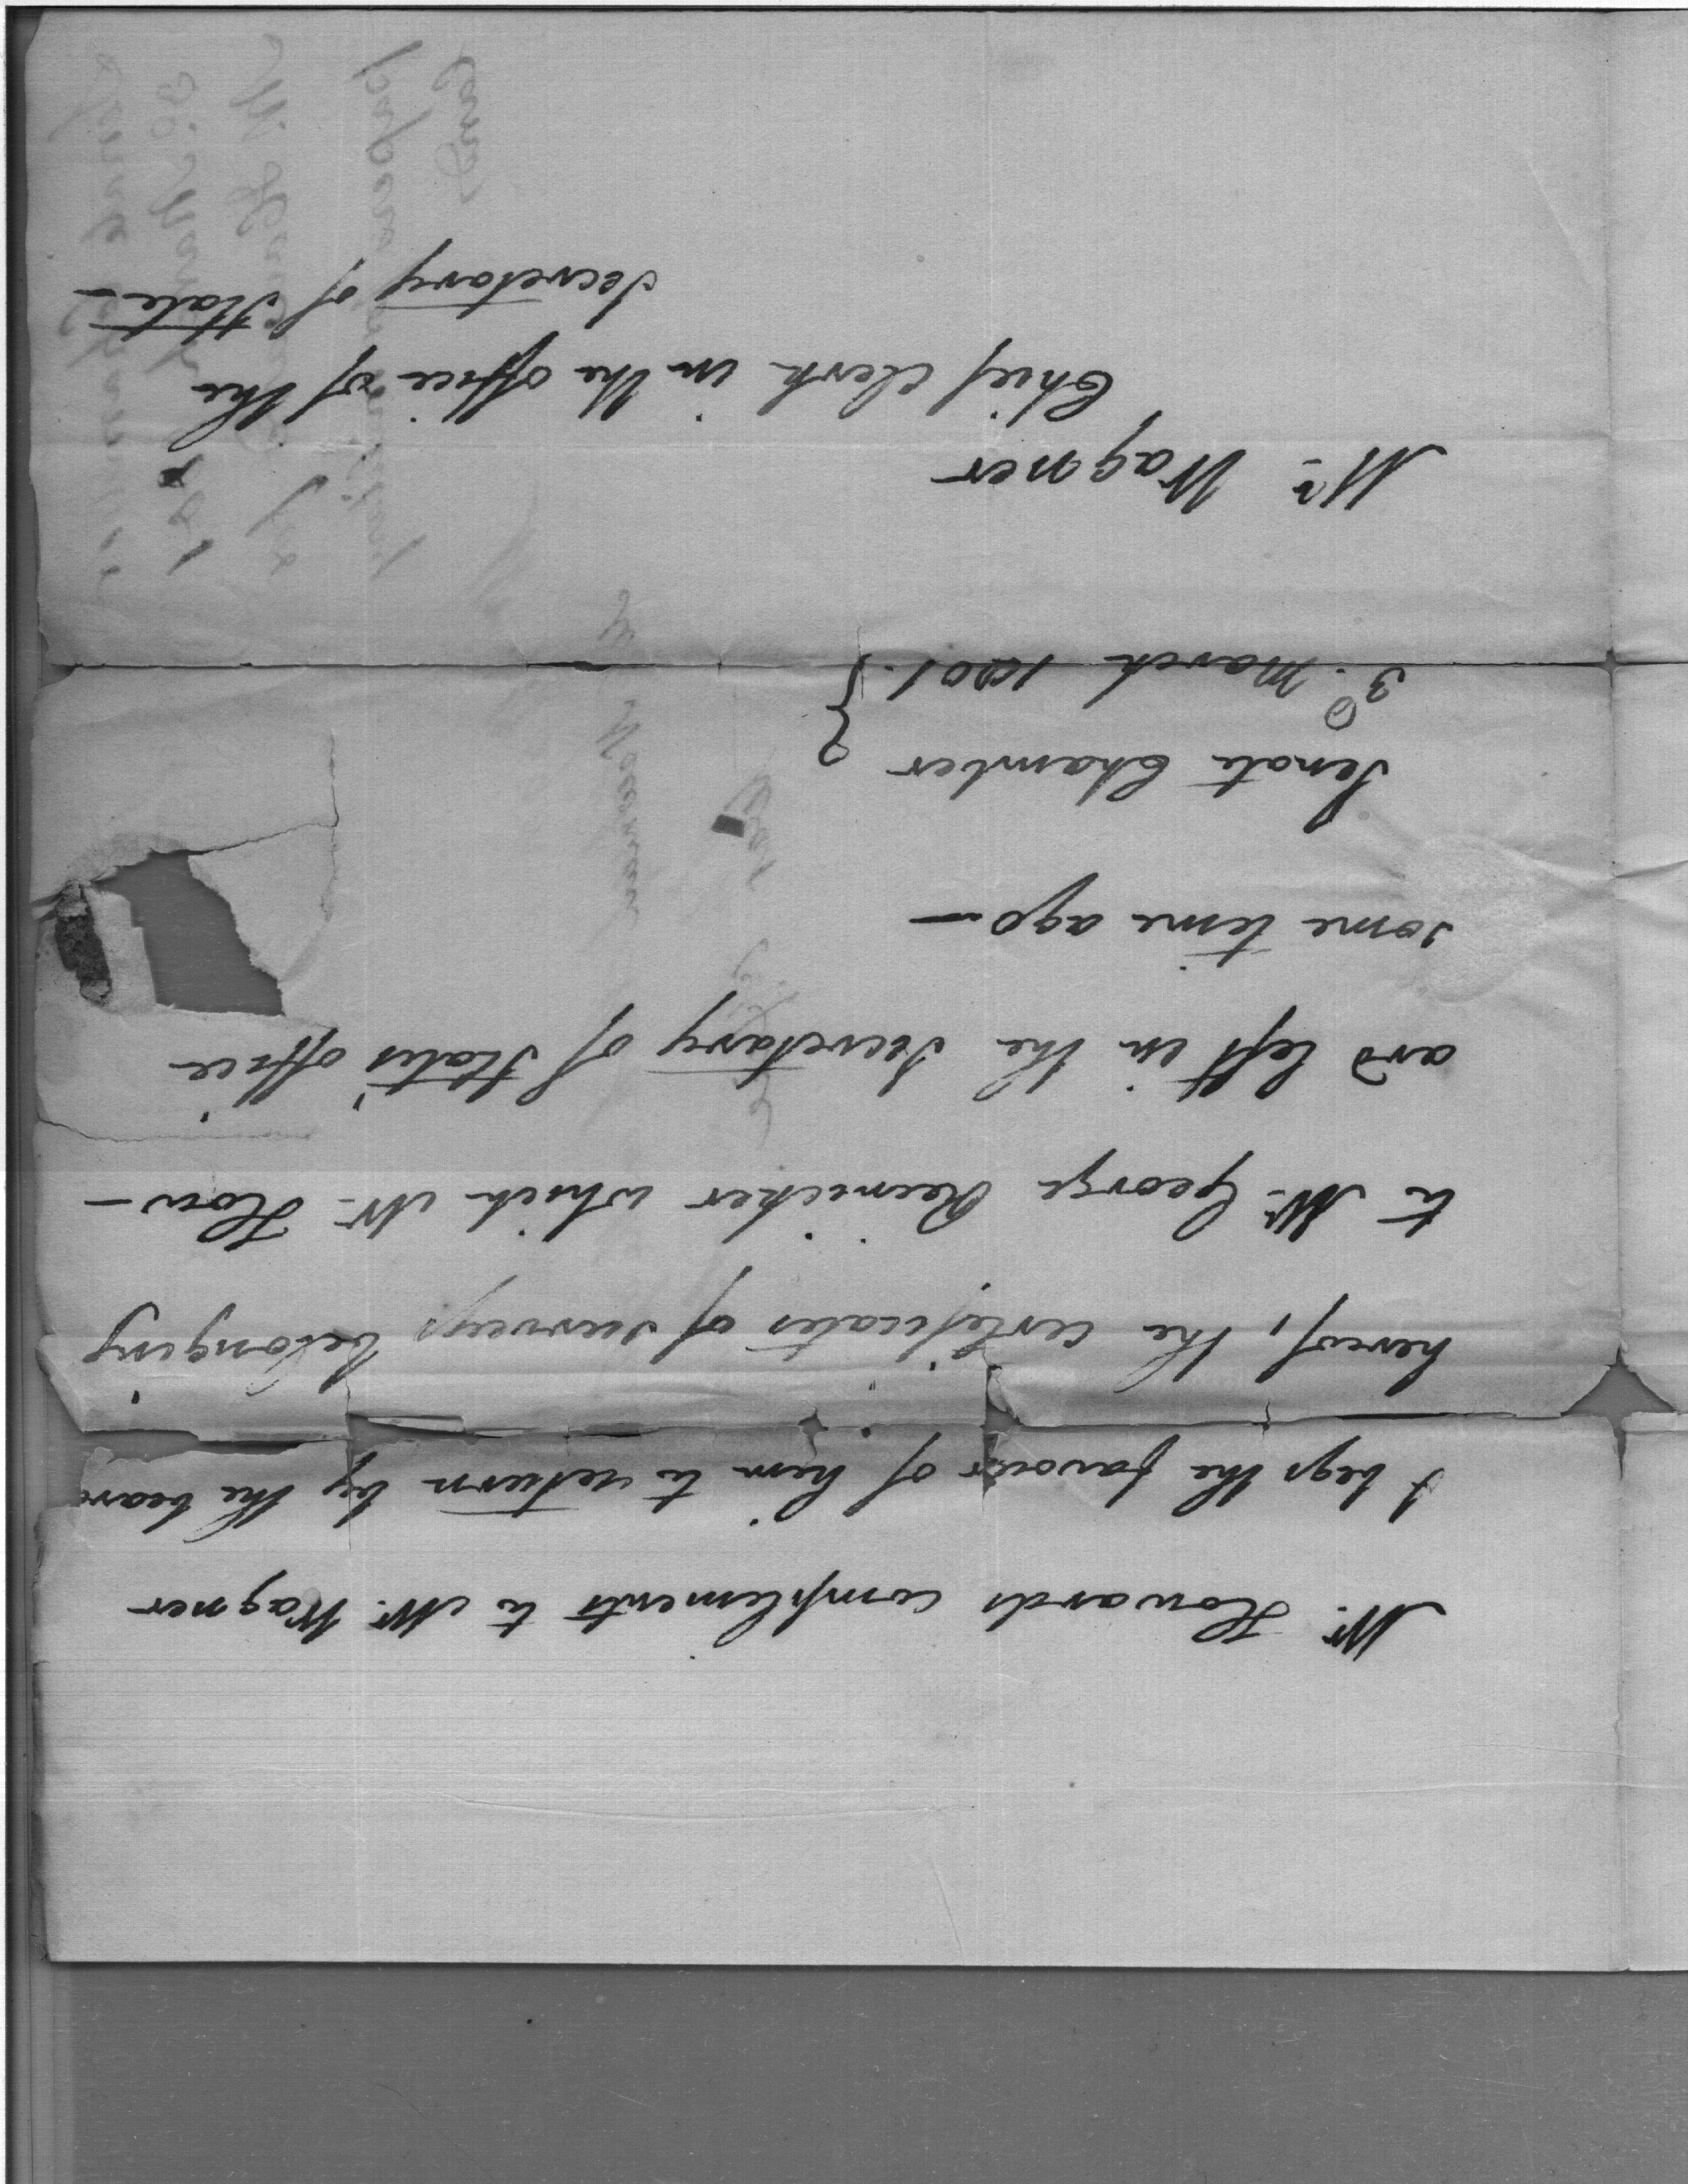 Mr. Howards compliments to Mr. Wagner
& begs the favour of him to return by the bearer
hereof, the certificates of surveys belonging
to Mr. George Reinicker which Mr. How—
ard left in the Secretary of State's office
some time ago—
Senate Chamber }
3d. March 1801. }
Mr. Wagner
Chief Clerk in the office of the
Secretary of State—